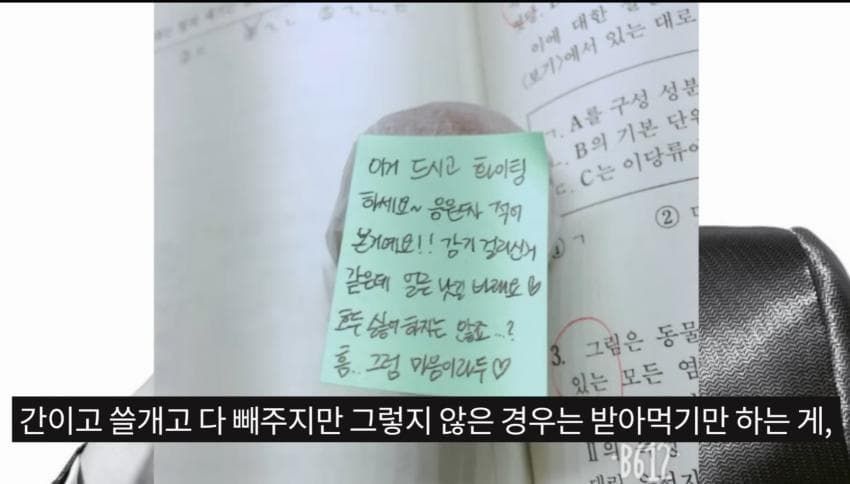 이에 대한 설
<보기>에서 있는 대로
ㄱ. A를 구성 성분
ㄴ. B의 기본 단위
ㄷ. C는 이당류이
① ㄱ ②
이거 드시고 화이팅
하세요~ 응원차 적어
본거예요!! 감기 걸리신거
같은데 얼른 낫길 바래요♡
호두 싫어하지는 않죠...?
흠.. 그럼 마음이라두♡
3. 그림은 동물
있는 모든 염
B612
간이고 쓸개고 다 빼주지만 그렇지 않은 경우는 받아먹기만 하는 게,